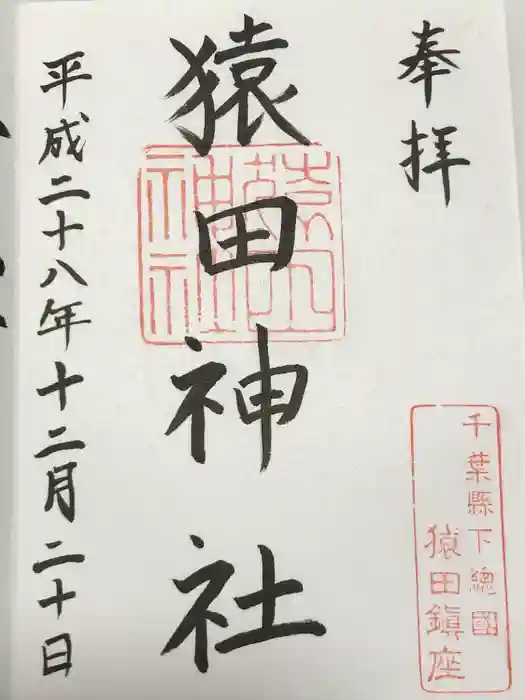 奉拝
千葉縣下總國
猿田鎭座
猿田神社
猿田神社
平成二十八年十二月二十日